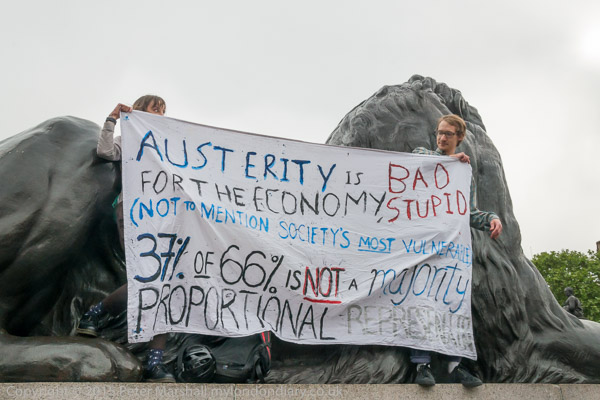 AUSTERITY IS BAD
FOR THE ECONOMY, STUPID
(NOT TO MENTION SOCIETY'S MOST VULNERABLE
37% OF 66% IS NOT A majority
PROPORTIONAL
Copyright © 2015 Peter Marshall mylondondiary.co.uk